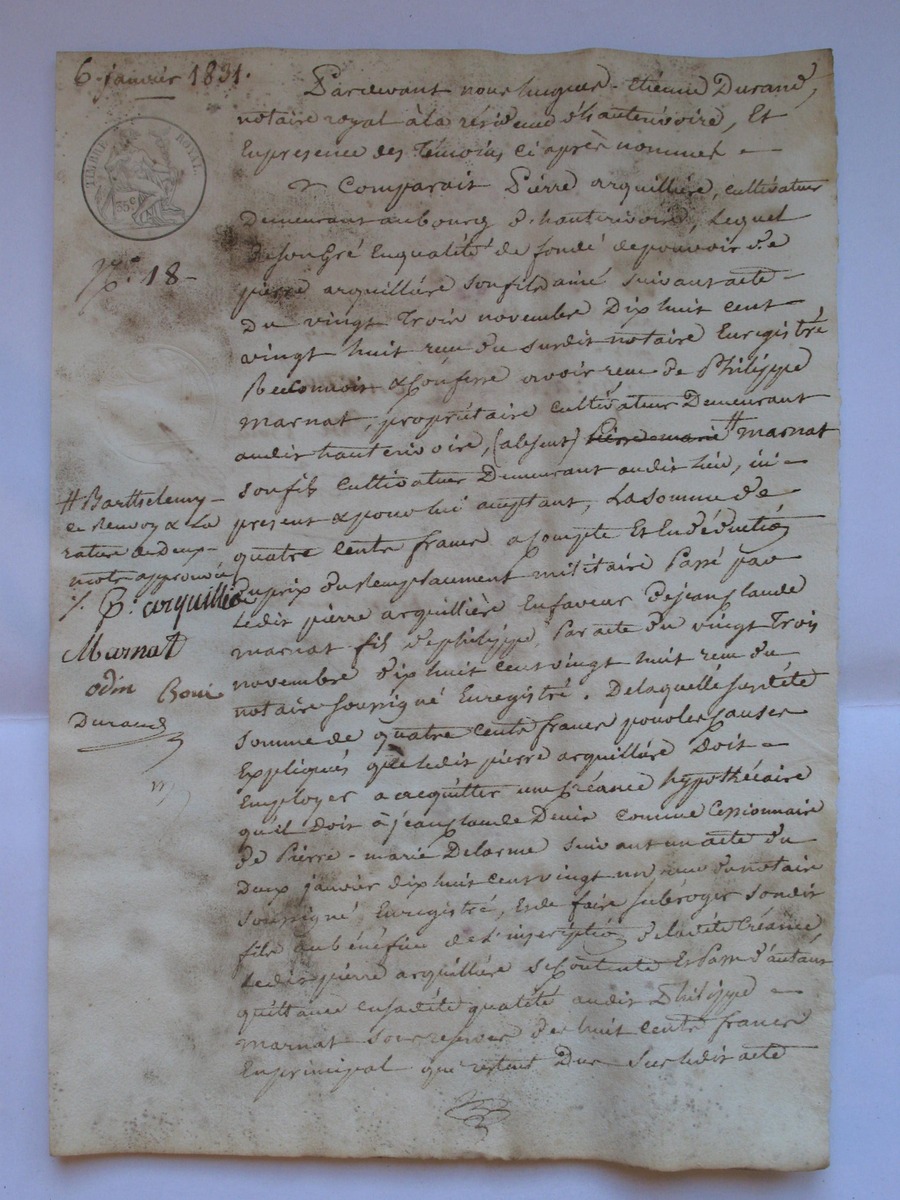 6 janvier 1831.
TIMBRE ROYAL
35c
N.° 18
Pardevant nous hugues-Etienne Durand,
notaire royal à la résidence d'hauterivoire, Et
En presence des témoins ci après nommés
Comparait Pierre arquillière, cultivateur
Demeurant au bourg d'hauterivoire, Lequel
de son Gré En qualité de fondé de pouvoir de
pierre arquillière son fils ainé suivant acte
Du vingt trois novembre Dix huit cent
vingt huit recu du susdit notaire Enregistré
Reconnoit & Confesse avoir recu de Philippe
marnat, propriétaire cultivateur Demeurant
audit hauterivoire, (absent) pierre marie # marnat
son fils cultivateur Demeurant audit lieu, ici
present & pour lui acceptant, La somme de
quatre cents francs acompte Et En déduction
Du prix du Remplacement militaire Passé par
Ledit pierre arquillière En faveur de jean claude
marnat fils de philippe, Par acte du vingt trois
novembre dix huit cent vingt huit recu du
notaire soussigné Enregistré. De laquelle susdite
somme de quatre cents francs pour les causes
Expliqués que ledit pierre arquillière Doit
Employer a acquitter une Créance hypothécaire
qu'il Doit à jean claude Denis comme Cessionnaire
de Pierre-marie Delorme suivant un acte du
Deux janvier dix huit cent vingt un recu du notaire
soussigné Enregistré, Et de faire subroger son dit
fils au bénéfice de l'inscription de ladite Créance,
Ledit pierre arquillière se Contente Et Passe d'autant
quittance en sadite qualité audit Philippe
marnat sous reserve de huit cents francs
En principal qui restent Dus sur ledit acte
# Barthelemy
ce Renvoy & La
rature de Deux
mots approuvés
P. arquillière
Marnat
odin
Durand